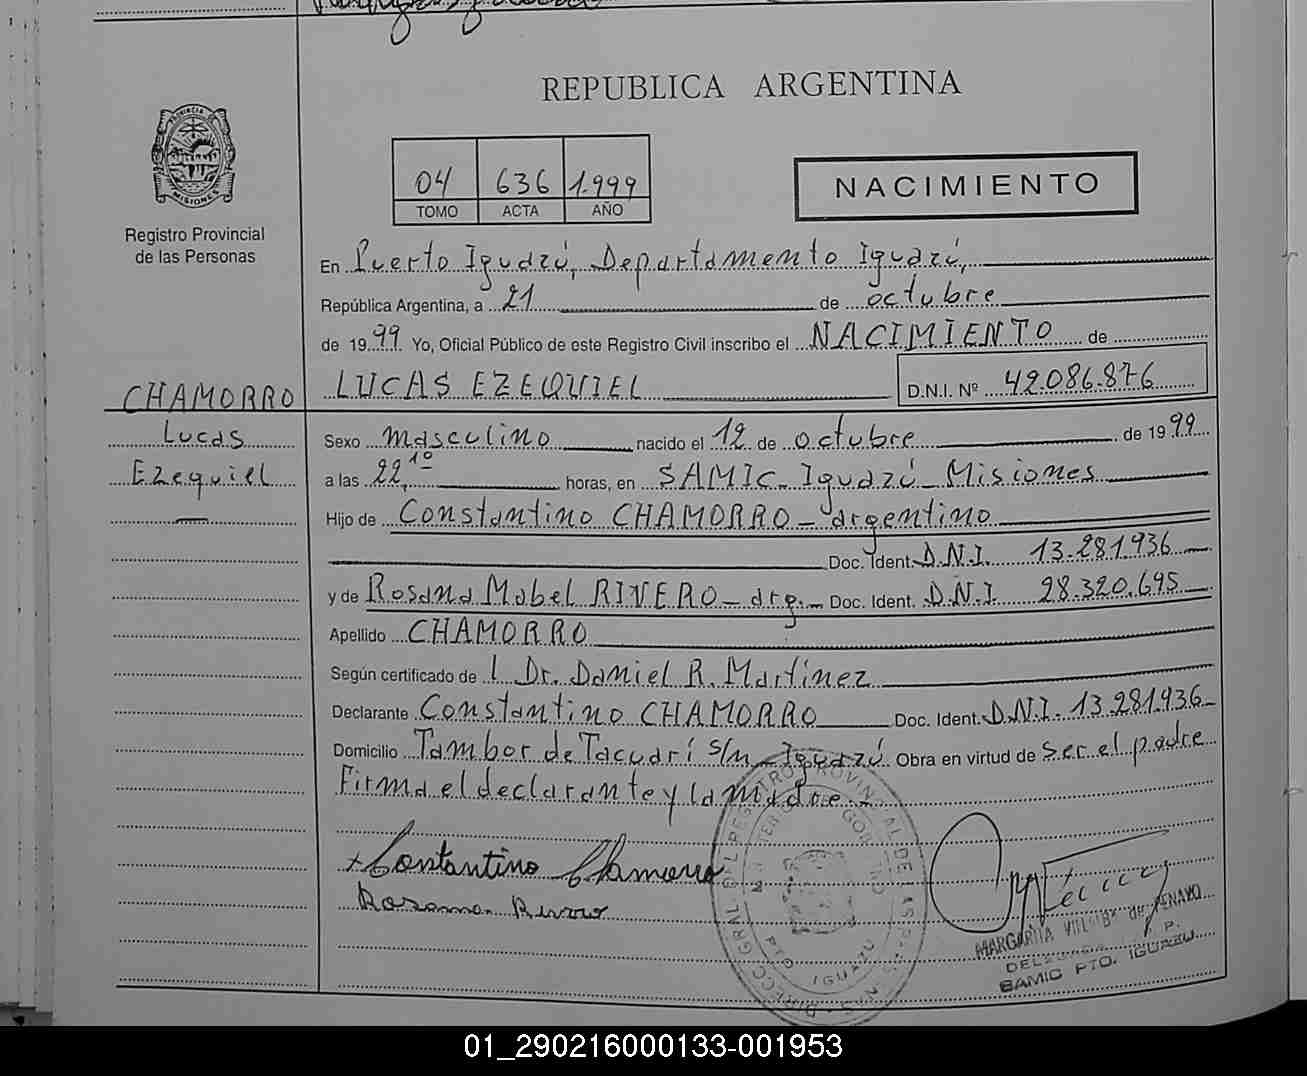 REPUBLICA ARGENTINA
PROVINCIA DE
MISIONES
Registro Provincial
de las Personas
04 636 1.999
TOMO ACTA AÑO
NACIMIENTO
En Puerto Iguazú, Departamento Iguazú,
República Argentina, a 21 de octubre
de 1999 Yo, Oficial Público de este Registro Civil inscribo el NACIMIENTO de
LUCAS EZEQUIEL D.N.I. Nº 42.086.876
CHAMORRO
Lucas
Ezequiel
Sexo masculino nacido el 12 de octubre de 1999
a las 22,10 horas, en SAMIC - Iguazú - Misiones
Hijo de Constantino CHAMORRO - argentino
Doc. Ident. D.N.I. 13.281.936
y de Rosana Mabel RIVERO - arg. - Doc. Ident. D.N.I 28.320.695
Apellido CHAMORRO
Según certificado de l Dr. Daniel R. Martinez
Declarante Constantino CHAMORRO Doc. Ident. D.N.I. 13.281.936
Domicilio Tambor de Tacuarí s/n - Iguazú Obra en virtud de ser el padre
Firma el declarante y la madre.-
Constantino Chamorro
Rosana Rivero
MARGARITA de PENAYO
SAMIC PTO. IGUAZU
IGUAZU
01_290216000133-001953